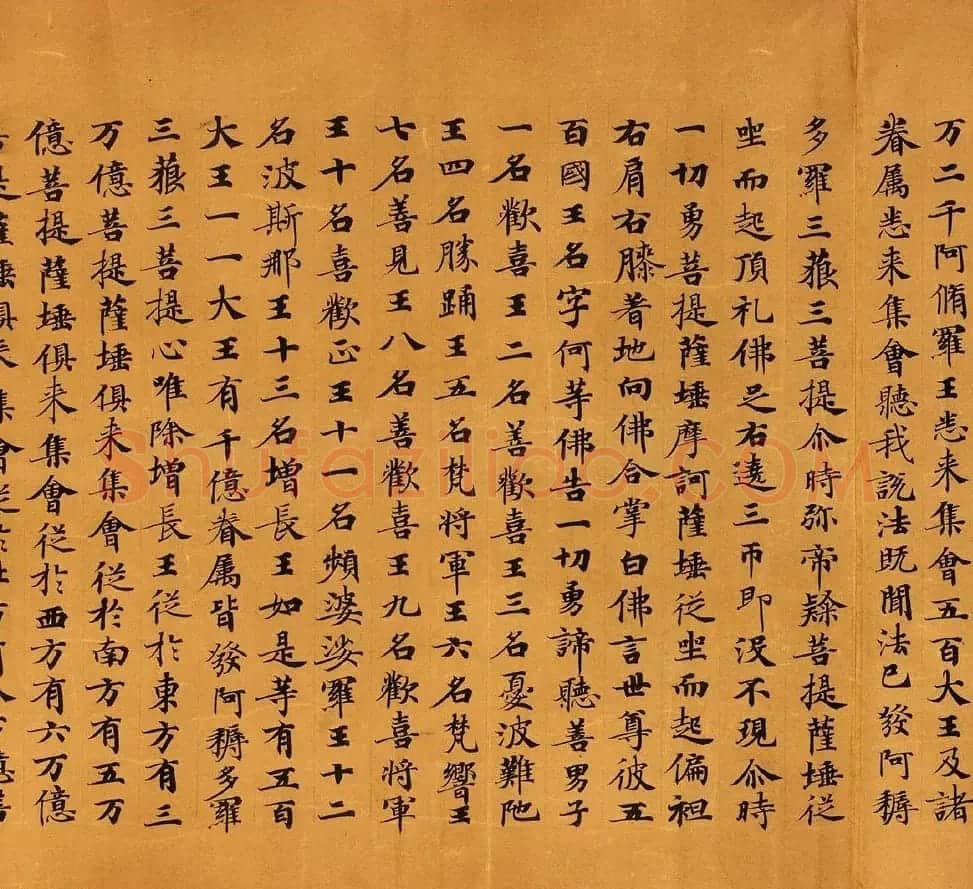 万二千阿脩羅王悉来集會五百大王及諸
眷属悉来集會聽我說法既聞法已發阿耨
多羅三藐三菩提尒時弥帝隸菩提薩埵従
坐而起頂礼佛足右遶三帀即没不現尒時
一切勇菩提薩埵摩訶薩埵従坐而起偏袒
右肩右膝著地向佛合掌白佛言世尊彼五
百國王名字何等佛告一切勇諦聽善男子
一名歡喜王二名善歡喜王三名憂波難陁
王四名勝踊王五名梵将軍王六名梵響王
七名善見王八名善歡喜王九名歡喜将軍
王十名喜歡正王十一名頻婆娑羅王十二
名波斯那王十三名增長王如是等有五百
大王一一大王有千億眷属皆發阿耨多羅
三藐三菩提心唯除增長王従於東方有三
万億菩提薩埵俱来集會従於南方有五万
億菩提薩埵俱来集會従於西方有六万億
shufaziliao.com